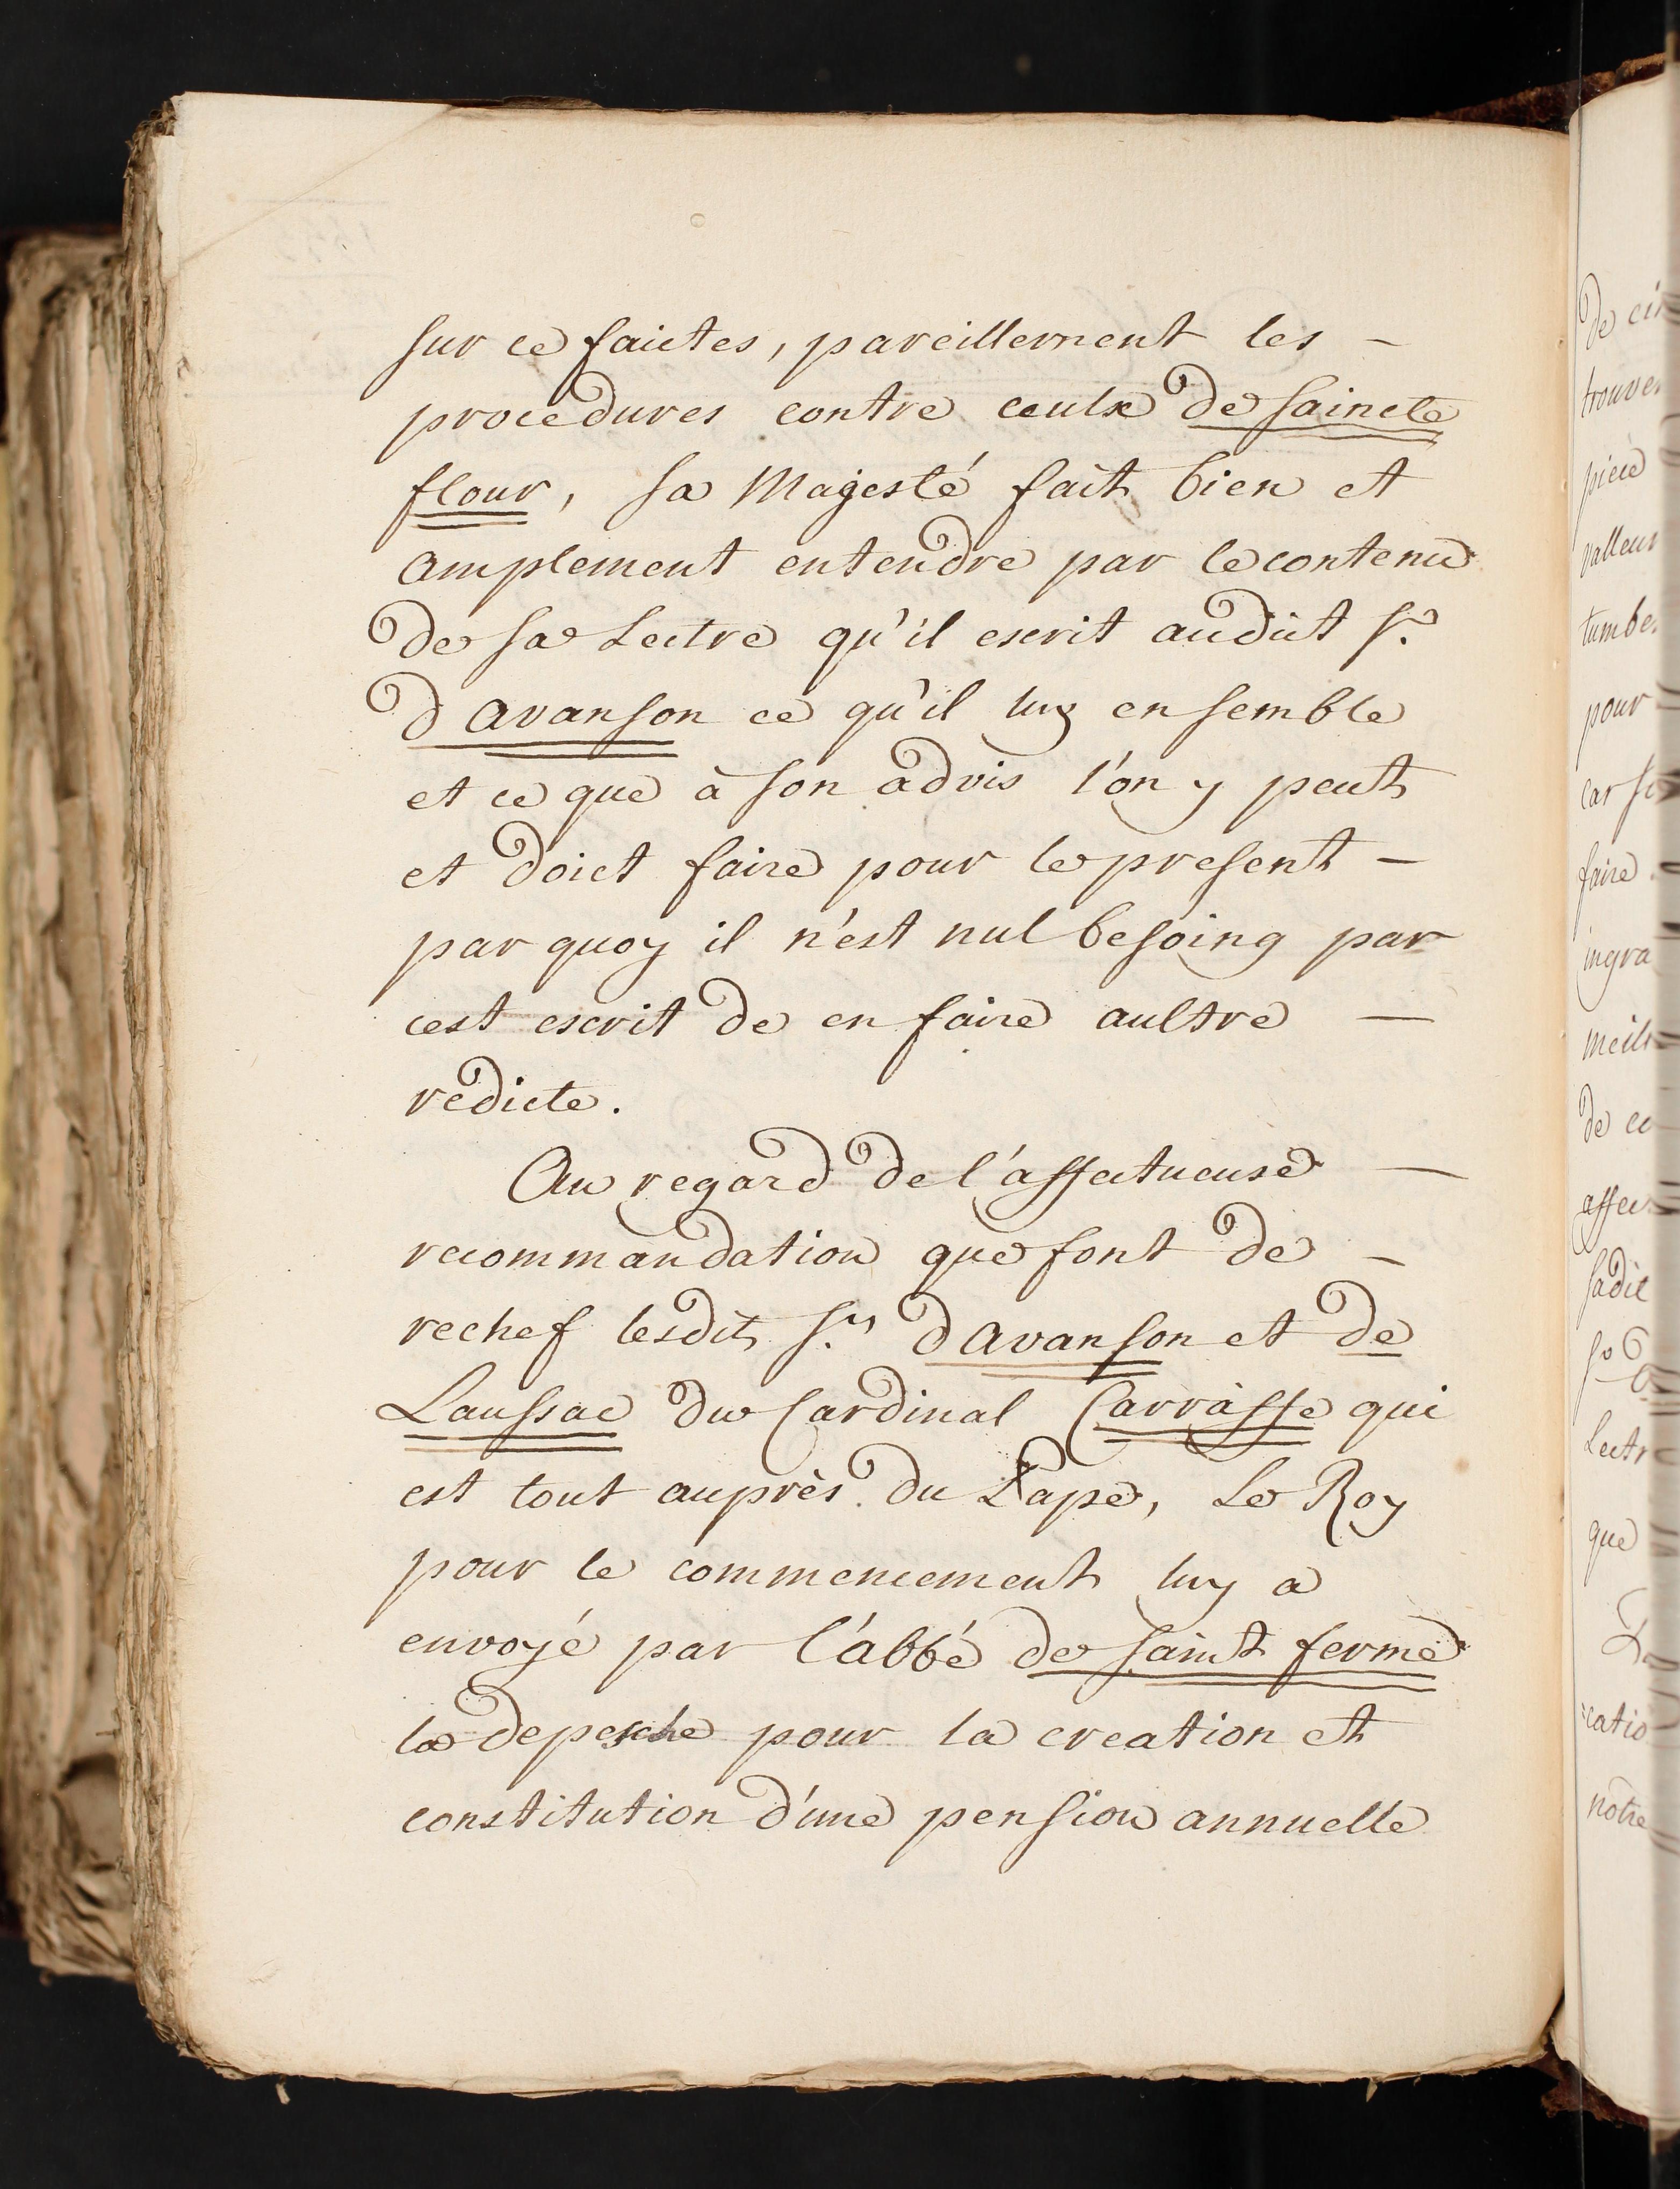 sur ce faictes, pareillement les –
procedures contre ceulx de saincte
flour, sa Magesté fait bien et
amplement entendre par le contenu
de sa Lectre qu'il escrit audict Sr.
d avanson ce qu'il luy en semble
et ce que à son advis l'on y peut
et doict faire pour le present –
par quoy il n'est nul besoing par
cest escrit de en faire aultre —
redicte.
Au regard de l'affectueuse —
recommandation que font de –
rechef lesdits Srs. d avanson et de
Laussac du Cardinal Carraffe qui
est tout auprès du Pape, Le Roy
pour le commencement luy a
envoyé par l'abbé de saint ferme
la depesche pour la creation et
constitution d'une pension annuelle
trouve
piece
pour
car
faire
ingra
de
affec
sadit
Lectr
que
catio
notre